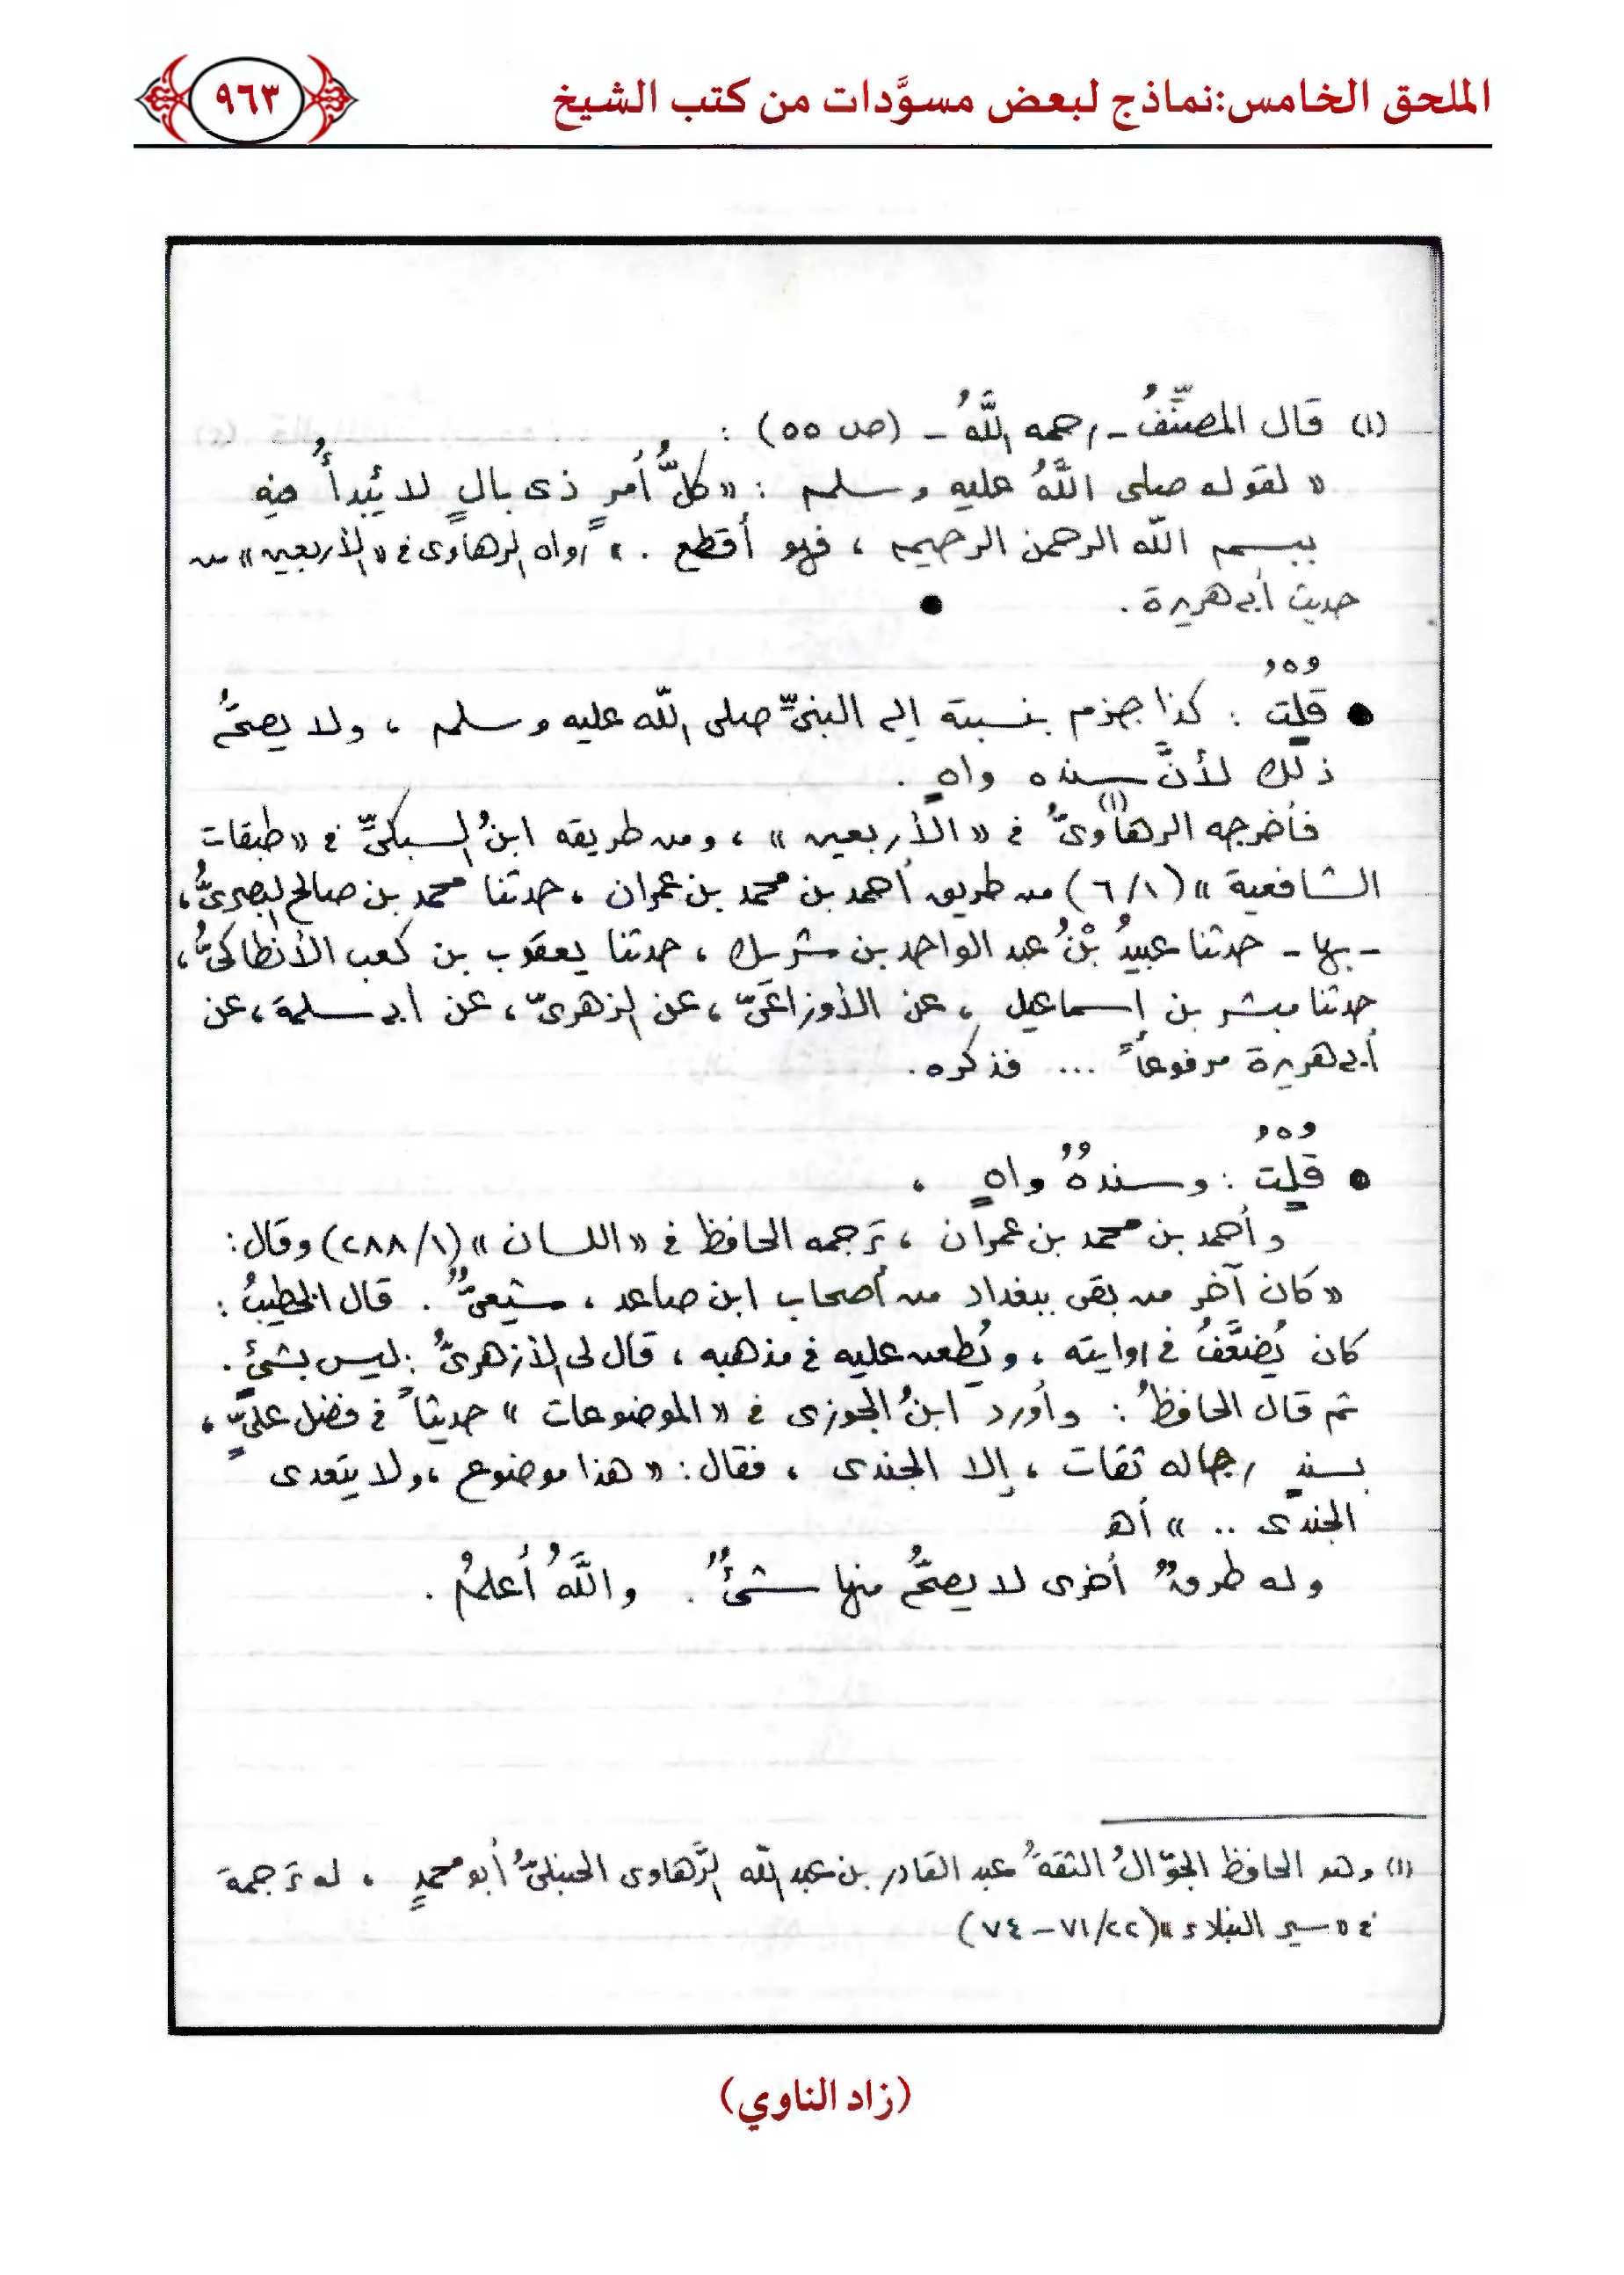 الملحق الخامس:نماذج لبعض مسوَّدات من كتب الشيخ
٩٦٣
(١) قال المصنِّفُ - رحمه اللَّهُ - (ص ٥٥) :
« لقوله صلى اللَّهُ عليه وسلم : « كلُّ أمرٍ ذى بالٍ لا يُبدأُ فيه
ببسم اللَّه الرحمن الرحيم ، فهو أقطع . » رواه الرهاوى فى « الأربعين » من
حديث أبى هريرة .
● قُلْتُ : كذا جزم بنسبته إلى النبىِّ صلى اللَّه عليه وسلم ، ولا يصحُّ
ذلك لأنَّ سنده واهٍ .
فأخرجه الرهاوىُّ (١) فى « الأربعين » ، ومن طريقه ابنُ السبكىِّ فى « طبقات
الشافعية » (٦/١) من طريق أحمد بن محمد بن عمران ، حدثنا محمد بن صالح البصرىُّ ،
- بها - حدثنا عبيدُ بْنُ عبد الواحد بن شريك ، حدثنا يعقوب بن كعب الأنطاكىُّ ،
حدثنا مبشر بن إسماعيل ، عن الأوزاعىِّ ، عن الزهرىِّ ، عن أبى سلمة ، عن
أبى هريرة مرفوعاً ... فذكره .
● قُلْتُ : وسندهُ واهٍ ،
وأحمد بن محمد بن عمران ، ترجمه الحافظ فى « اللسان » (٢٨٨/١) وقال :
« كان آخر من بقى ببغداد من أصحاب ابن صاعد ، شيعىٌّ . قال الخطيبُ :
كان يُضعَّفُ فى روايته ، ويُطعن عليه فى مذهبه ، قال لى الأزهرىُّ : ليس بشئ .
ثم قال الحافظُ : وأورد ابنُ الجوزى فى « الموضوعات » حديثاً فى فضل علىٍّ ،
بسندٍ رجاله ثقات ، إلا الجندى ، فقال : « هذا موضوع ، ولا يتعدى
الجندى .. » أهـ
وله طرقٌ أخرى لا يصحُّ منها شئٌ . واللَّهُ أعلمُ .
(١) وهو الحافظ الجوَّالُ الثقةُ عبد القادر بن عبد اللَّه الرَّهاوى الحنبلىُّ أبو محمدٍ ، له ترجمة
فى « سير النبلاء » (٢٢/ ٧١ - ٧٤)
(زاد الناوي)